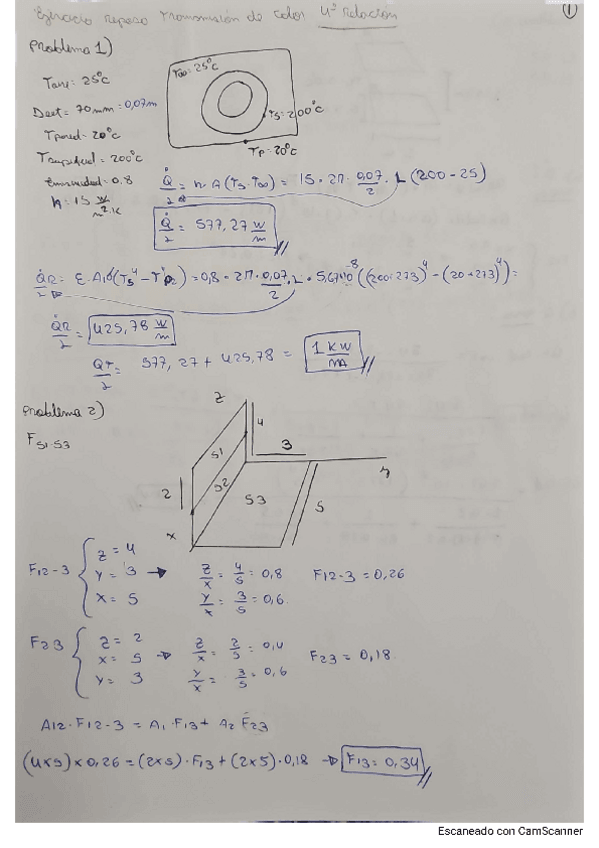 Ejercicio repaso Transmisión de Calor 4ª Relación
1
Problema 1)
T∞ = 25°C
Dext = 70mm = 0,07m
Tpared = 20°C
Tsuperficial = 200°C
Emisividad = 0.8
h = 15 W/m²·K
T∞ = 25°C
Ts = 200°C
TP = 20°C
Q̇/2 = h·A(Ts-T∞) = 15·2π·0,07/2·L(200-25)
Q̇/2 = 577,27 W/m
Q̇R/2 = ε·A·σ(Ts⁴ - Tp⁴) = 0,8·2π·0,07/2·L·5,67·10⁻⁸((200+273)⁴ - (20+273)⁴) =
Q̇R/2 = 425,78 W/m
QT/2 = 577,27 + 425,78 = 1 KW/m
Problema 2)
FS1-S3
z
4
3
y
S1
S2
2
S3
5
x
F12-3 { z = 4
y = 3 → z/x = 4/5 = 0,8 F12-3 = 0,26
x = 5 y/x = 3/5 = 0,6
F23 { z = 2
x = 5 → z/x = 2/5 = 0,4 F23 = 0,18
y = 3 y/x = 3/5 = 0,6
A12·F12-3 = A1·F13 + A2 F23
(4x5)x0,26 = (2x5)·F13 + (2x5)·0,18 → F13 = 0,34
Escaneado con CamScanner